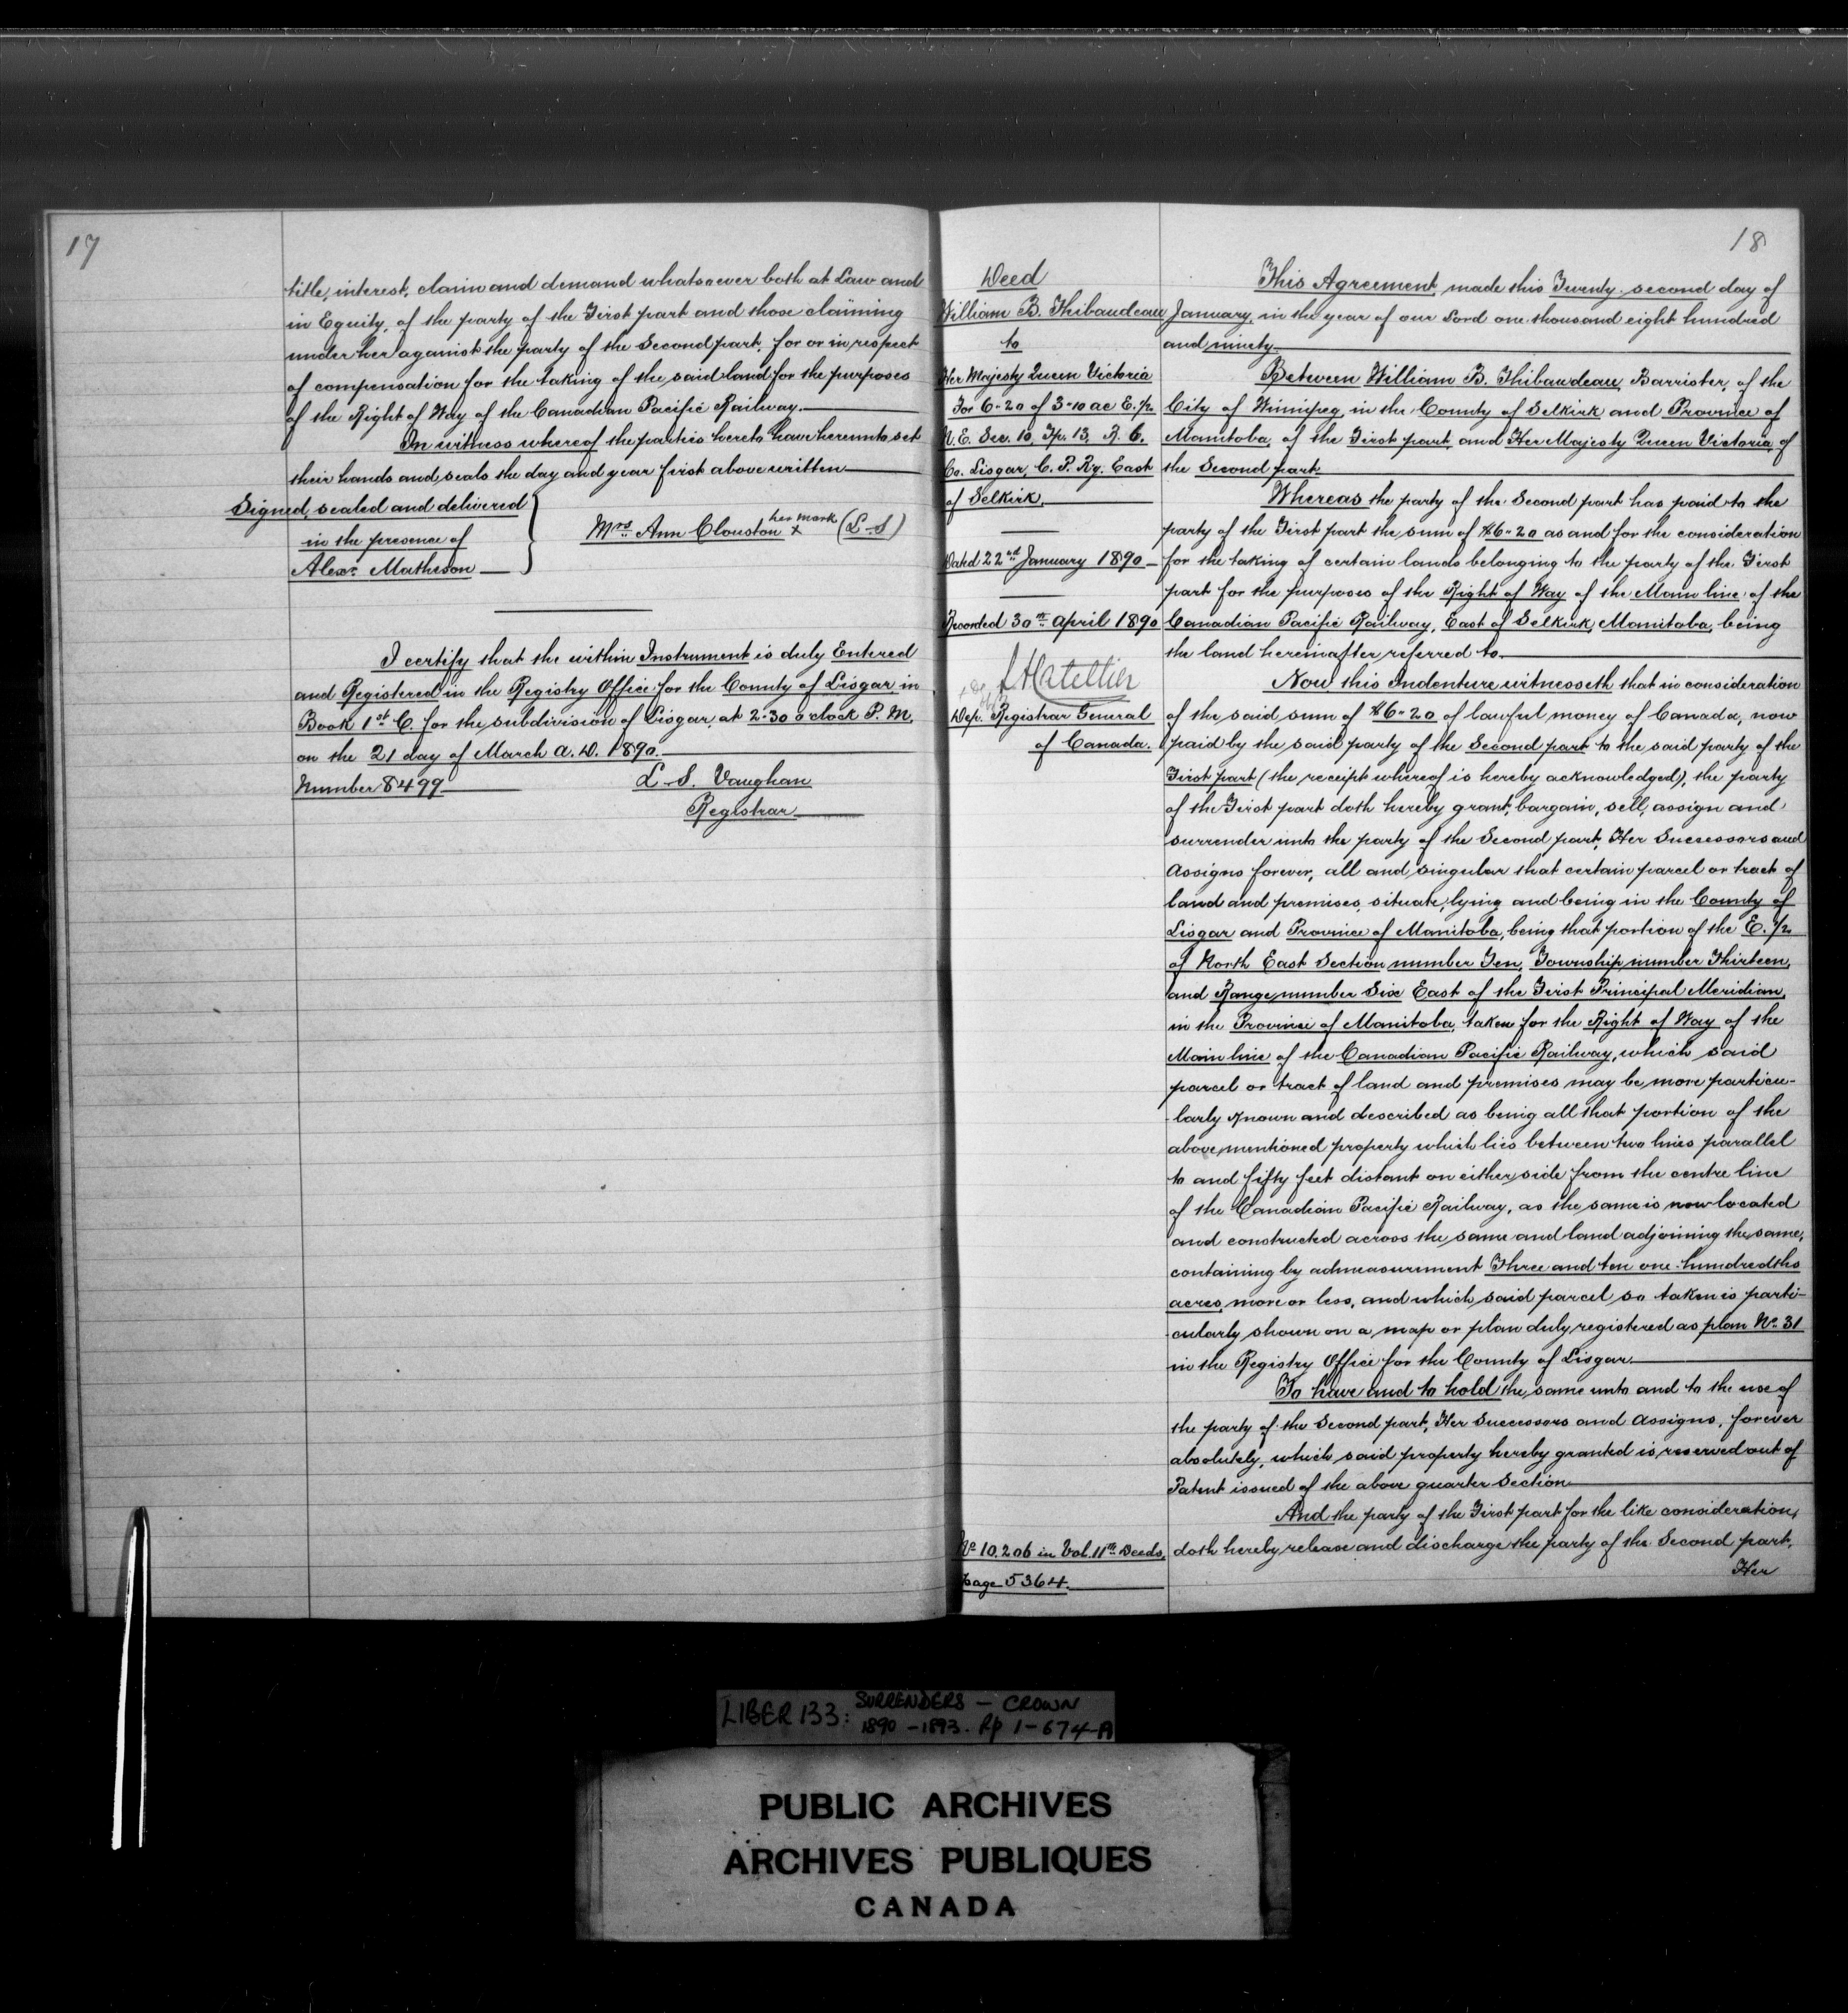 17
title, interest, claim and demand whatsoever both at Law and
in Equity, of the party of the First part and those claiming
under her against the party of the Second part, for or in respect
of compensation for the taking of the said land for the purposes
of the Right of Way of the Canadian Pacific Railway.
In witness whereof the parties hereto have hereunto set
their hands and seals the day and year first above written
Signed, sealed and delivered
in the presence of
Alexr. Matheson
Mrs. Ann Clouston her mark x (L.S)
I certify that the within Instrument is duly Entered
and Registered in the Registry Office for the County of Lisgar in
Book 1st C. for the subdivision of Lisgar, at 2-30 o'clock P.M.
on the 21 day of March A.D. 1890.
Number 8499
L. S. Vaughan
Registrar
18
Deed
William B. Thibaudeau
to
Her Majesty Queen Victoria
For 6-20 of 3-10 ac E. 1/2
N.E. Sec. 10, Tp. 13, R. 6.
Co. Lisgar, C. P. Ry. East
of Selkirk.
Dated 22nd January 1890
Recorded 30th April 1890
Dep. Registrar General
of Canada.
No 10.206 in Vol. 11th Deeds,
Page 5364.
This Agreement, made this Twenty second day of
January, in the year of our Lord one thousand eight hundred
and ninety
Between William B. Thibaudeau, Barrister, of the
City of Winnipeg, in the County of Selkirk and Province of
Manitoba, of the First part, and Her Majesty Queen Victoria, of
the Second part
Whereas the party of the Second part has paid to the
party of the First part the sum of $6-20 as and for the consideration
for the taking of certain lands belonging to the party of the First
part for the purposes of the Right of Way of the Main line of the
Canadian Pacific Railway, East of Selkirk, Manitoba, being
the land hereinafter referred to.
Now this Indenture witnesseth that in consideration
of the said sum of $6-20 of lawful money of Canada, now
paid by the said party of the Second part to the said party of the
First part (the receipt whereof is hereby acknowledged), the party
of the First part doth hereby grant, bargain, sell, assign and
surrender unto the party of the Second part, Her Successors and
Assigns forever, all and singular that certain parcel or tract of
land and premises, situate, lying and being in the County of
Lisgar and Province of Manitoba, being that portion of the E. 1/2
of North East Section number Ten, Township number Thirteen,
and Range number Six East of the First Principal Meridian,
in the Province of Manitoba, taken for the Right of Way of the
Main line of the Canadian Pacific Railway, which said
parcel or tract of land and premises may be more particu-
-larly known and described as being all that portion of the
above mentioned property which lies between two lines parallel
to and fifty feet distant on either side from the centre line
of the Canadian Pacific Railway, as the same is now located
and constructed across the same and land adjoining the same,
containing by admeasurement Three and ten one-hundredths
acres, more or less, and which said parcel so taken is parti-
-cularly shown on a map or plan duly registered as plan No. 31
in the Registry Office for the County of Lisgar.
To have and to hold the same unto and to the use of
the party of the Second part, Her Successors and Assigns, forever
absolutely, which said property hereby granted is reserved out of
Patent issued of the above quarter Section
And the party of the First part for the like consideration,
doth hereby release and discharge the party of the Second part,
Her
LIBER 133: SURRENDERS - CROWN
1890 - 1893. Pp 1-674-A
PUBLIC ARCHIVES
ARCHIVES PUBLIQUES
CANADA